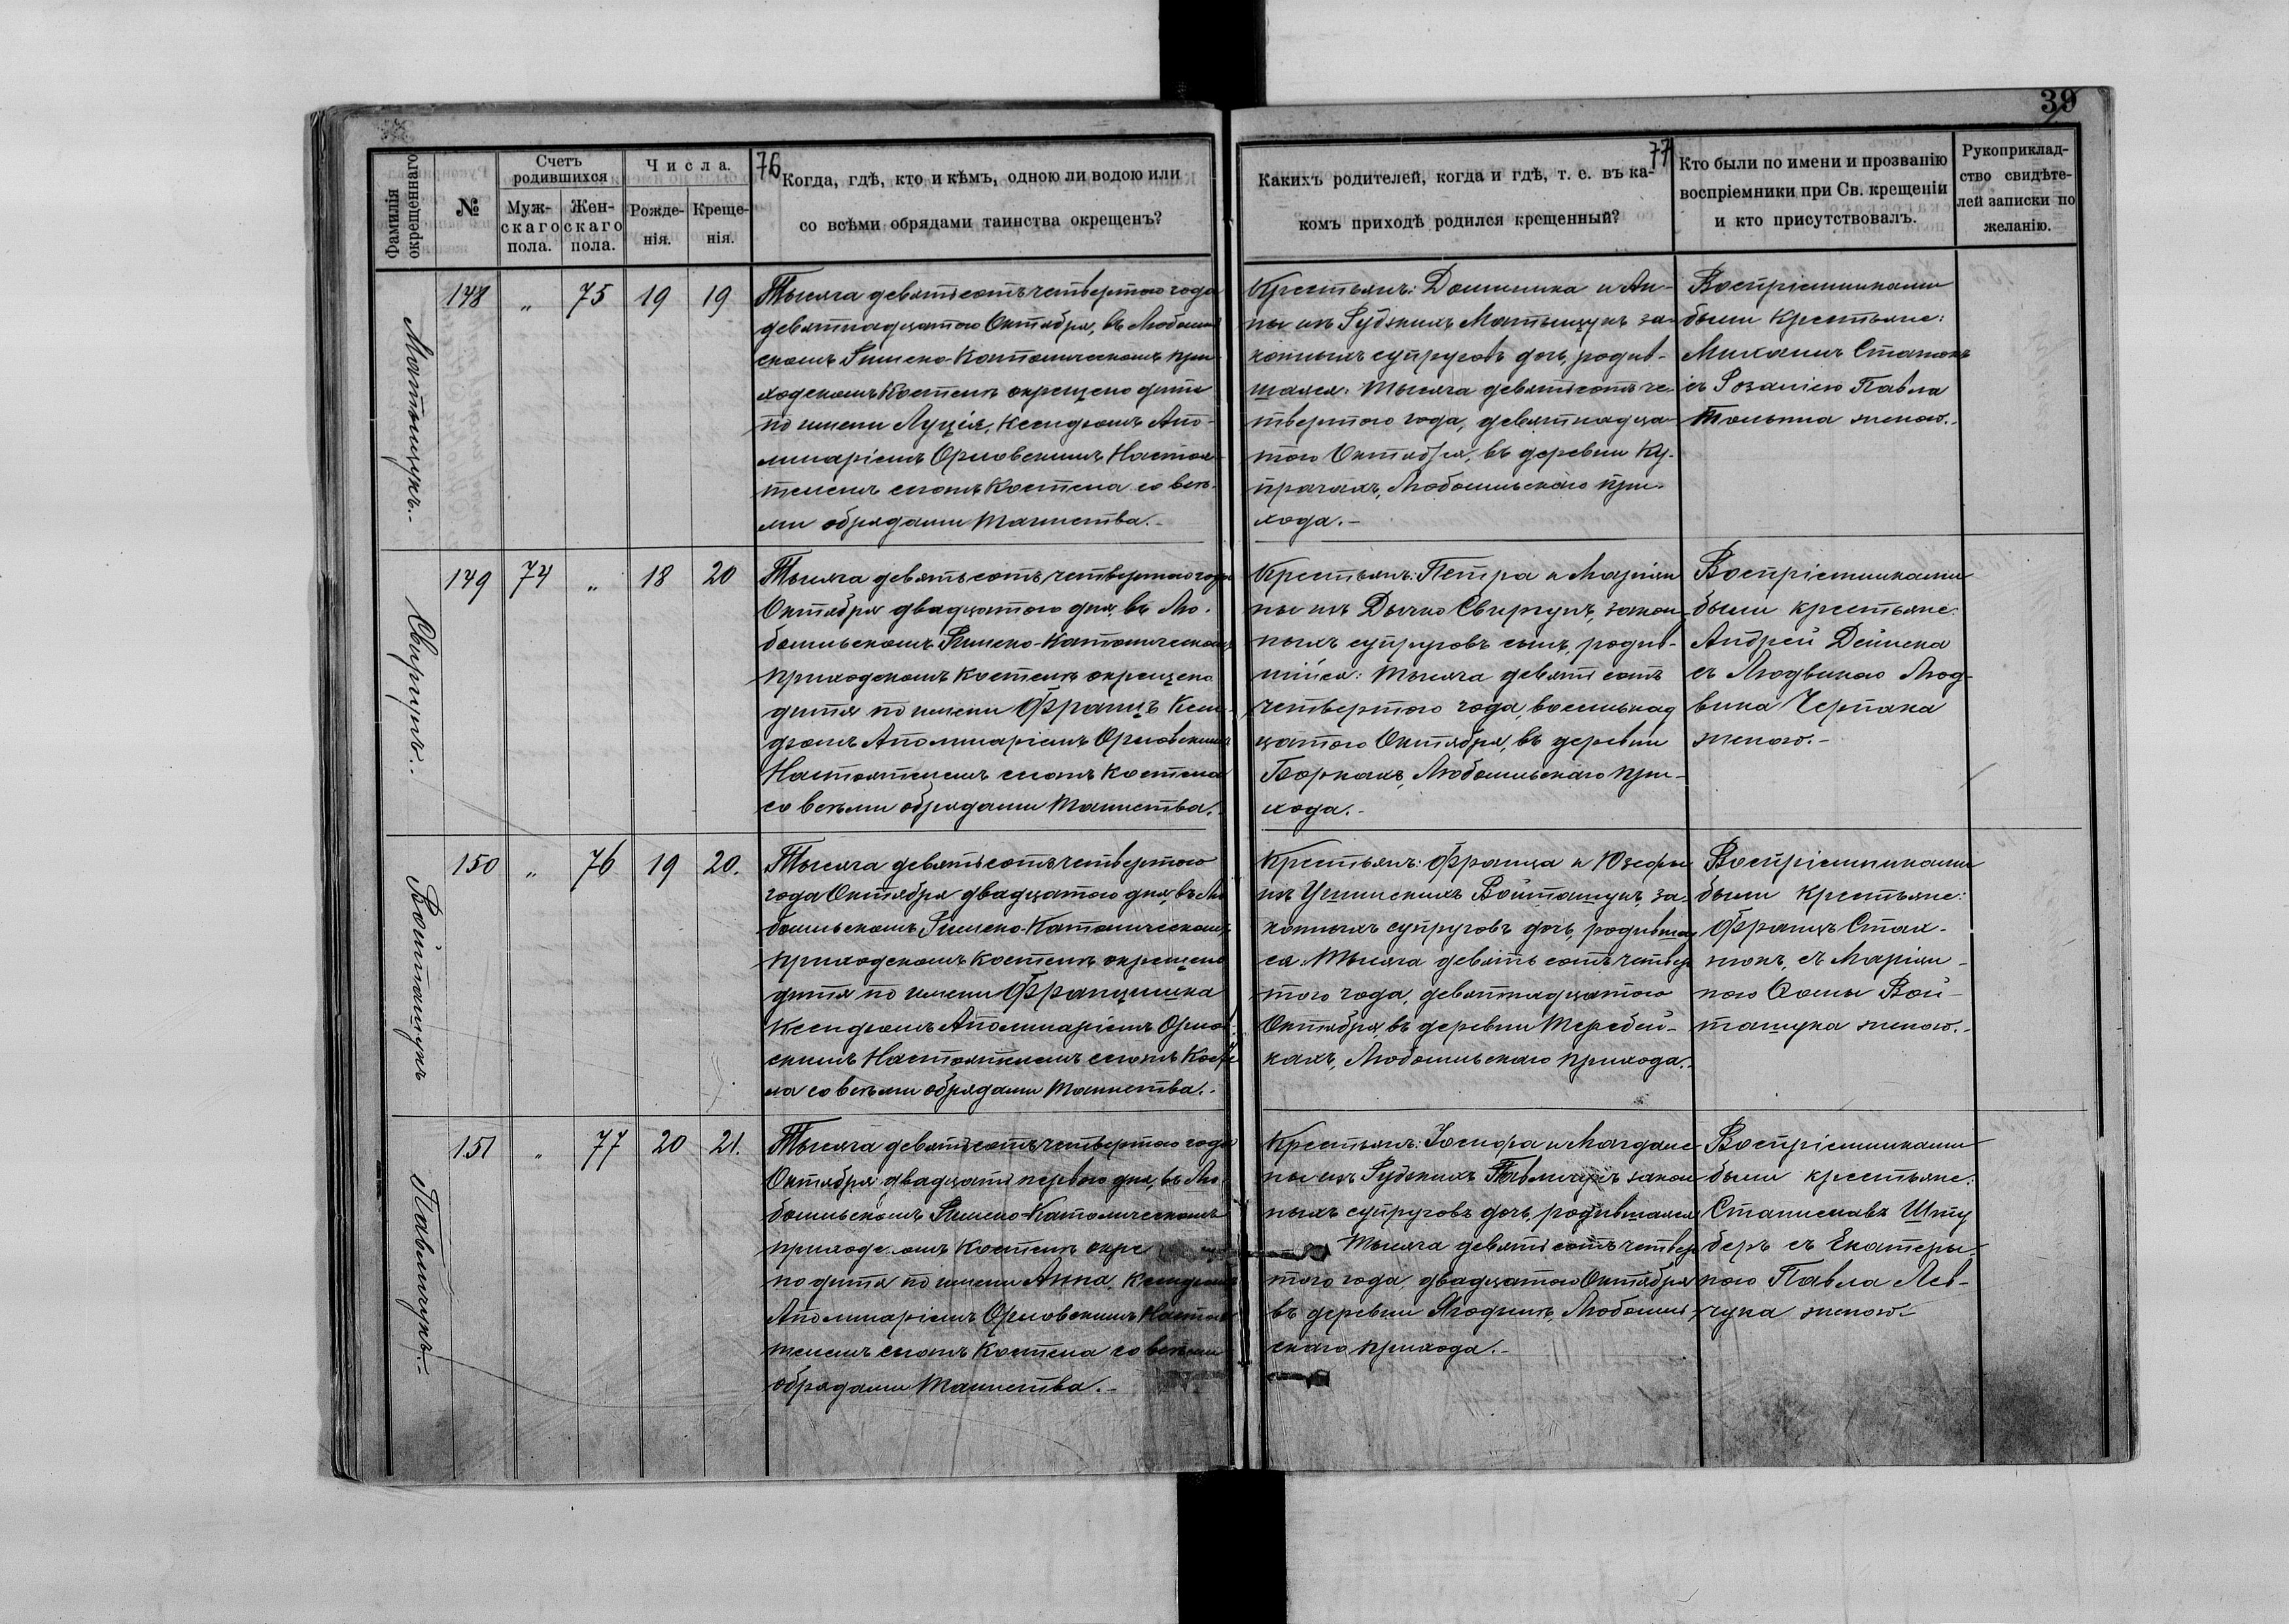 39
76
77
Фамилія окрещеннаго
№
Счетъ родившихся
Муж-
скаго
пола.
Жен-
скаго
пола.
Числа.
Рожде-
нія.
Креще-
нія.
Когда, гдѣ, кто и кѣмъ, одною ли водою или
со всѣми обрядами таинства окрещенъ?
Какихъ родителей, когда и гдѣ, т. е. въ ка-
комъ приходѣ родился крещенный?
Кто были по имени и прозванію
воспріемники при Св. крещеніи
и кто присутствовалъ.
Рукоприклад-
ство свидѣте-
лей записки по
желанію.
Матыщукъ.-
148 „ 75 19 19
Тысяча девятьсотъ четвертого года
девятнадцатого Октября, въ Любомль
скомъ Римско-Католическомъ при-
ходскомъ Костелѣ окрещено дитя
по имени Луція, Ксендзомъ Апо-
линаріемъ Орловскимъ Настоя-
телемъ сногъ Костела со всѣ-
ми обрядами Таинства.-
Крестьянъ: Доминика и Ан-
ны изъ Рудскихъ Матыщукъ за-
конныхъ супруговъ дочь, родив-
шаяся: Тысяча девятьсотъ че-
твертого года, девятнадца-
того Октября, въ деревни Ку-
прачахъ, Любомльскаго при-
хода.-
Воспріемниками
были крестьяне:
Михаилъ
съ Розаліею Павла
женою.-
Свиргунъ.
149 74 „ 18 20
Тысяча девятьсотъ четвертого года
Октября двадцатого дня, въ Лю-
бомльскомъ Римско-Католическомъ
приходскомъ Костелѣ окрещено
дитя по имени Францъ Ксен-
дзомъ Аполинаріемъ Орловскимъ
Настоятелемъ сногъ Костела
со всѣми обрядами Таинства.-
Крестьянъ: Петра и Маріян-
ны изъ Дычко Свиргунъ, закон-
ныхъ супруговъ сынъ, родив-
шійся: Тысяча девятьсотъ
четвертого года, восемнад
цатого Октября, въ деревни
Боркахъ, Любомльскаго при-
хода.-
Воспріемниками
были крестьяне:
Андрей Дейнека
съ Людвикою Люд-
вика Черпака
женою.-
Войташукъ
150 „ 76 19 20.
Тысяча девятьсотъ четвертого
года Октября двадцатого дня, въ Лю
бомльскомъ Римско-Католическомъ
приходскомъ Костелѣ окрещено
дитя по имени Францишка
Ксендзомъ Аполинаріемъ Орлов-
скимъ Настоятелемъ сногъ Косте
ла со всѣми обрядами Таинства.-
Крестьянъ: Франца и Юзефы
изъ Войташукъ, за-
конныхъ супруговъ дочь, родившая
ся: Тысяча девятьсотъ четвер
того года, девятнадцатого
Октября въ деревни Теребей-
кахъ, Любомльскаго прихода.-
Воспріемниками
были крестьяне:
Францъ Стах-
нюкъ, съ Маріян-
ною Ѳомы Вой-
ташука женою.-
Павлючукъ.-
151 „ 77 20 21.
Тысяча девятьсотъ четвертого года
Октября двадцать перваго дня, въ Лю-
бомльскомъ Римско-Католическомъ
приходскомъ Костелѣ окре
но дитя по имени Анна, Ксендзомъ
Аполинаріемъ Орловскимъ Настоя
телемъ сногъ Костела со всѣми
обрядами Таинства.-
Крестьянъ: Іосифа и Магдале
ны изъ Рудскихъ закон
ныхъ супруговъ дочь, родившаяся
Тысяча девятьсотъ четвер
того года, двадцатого Октября
въ деревни Ягодинѣ, Любомль-
скаго прихода.-
Воспріемниками
были крестьяне:
Станиславъ Шту
беръ съ Екатеры-
ною Павла Лев-
чука женою.-